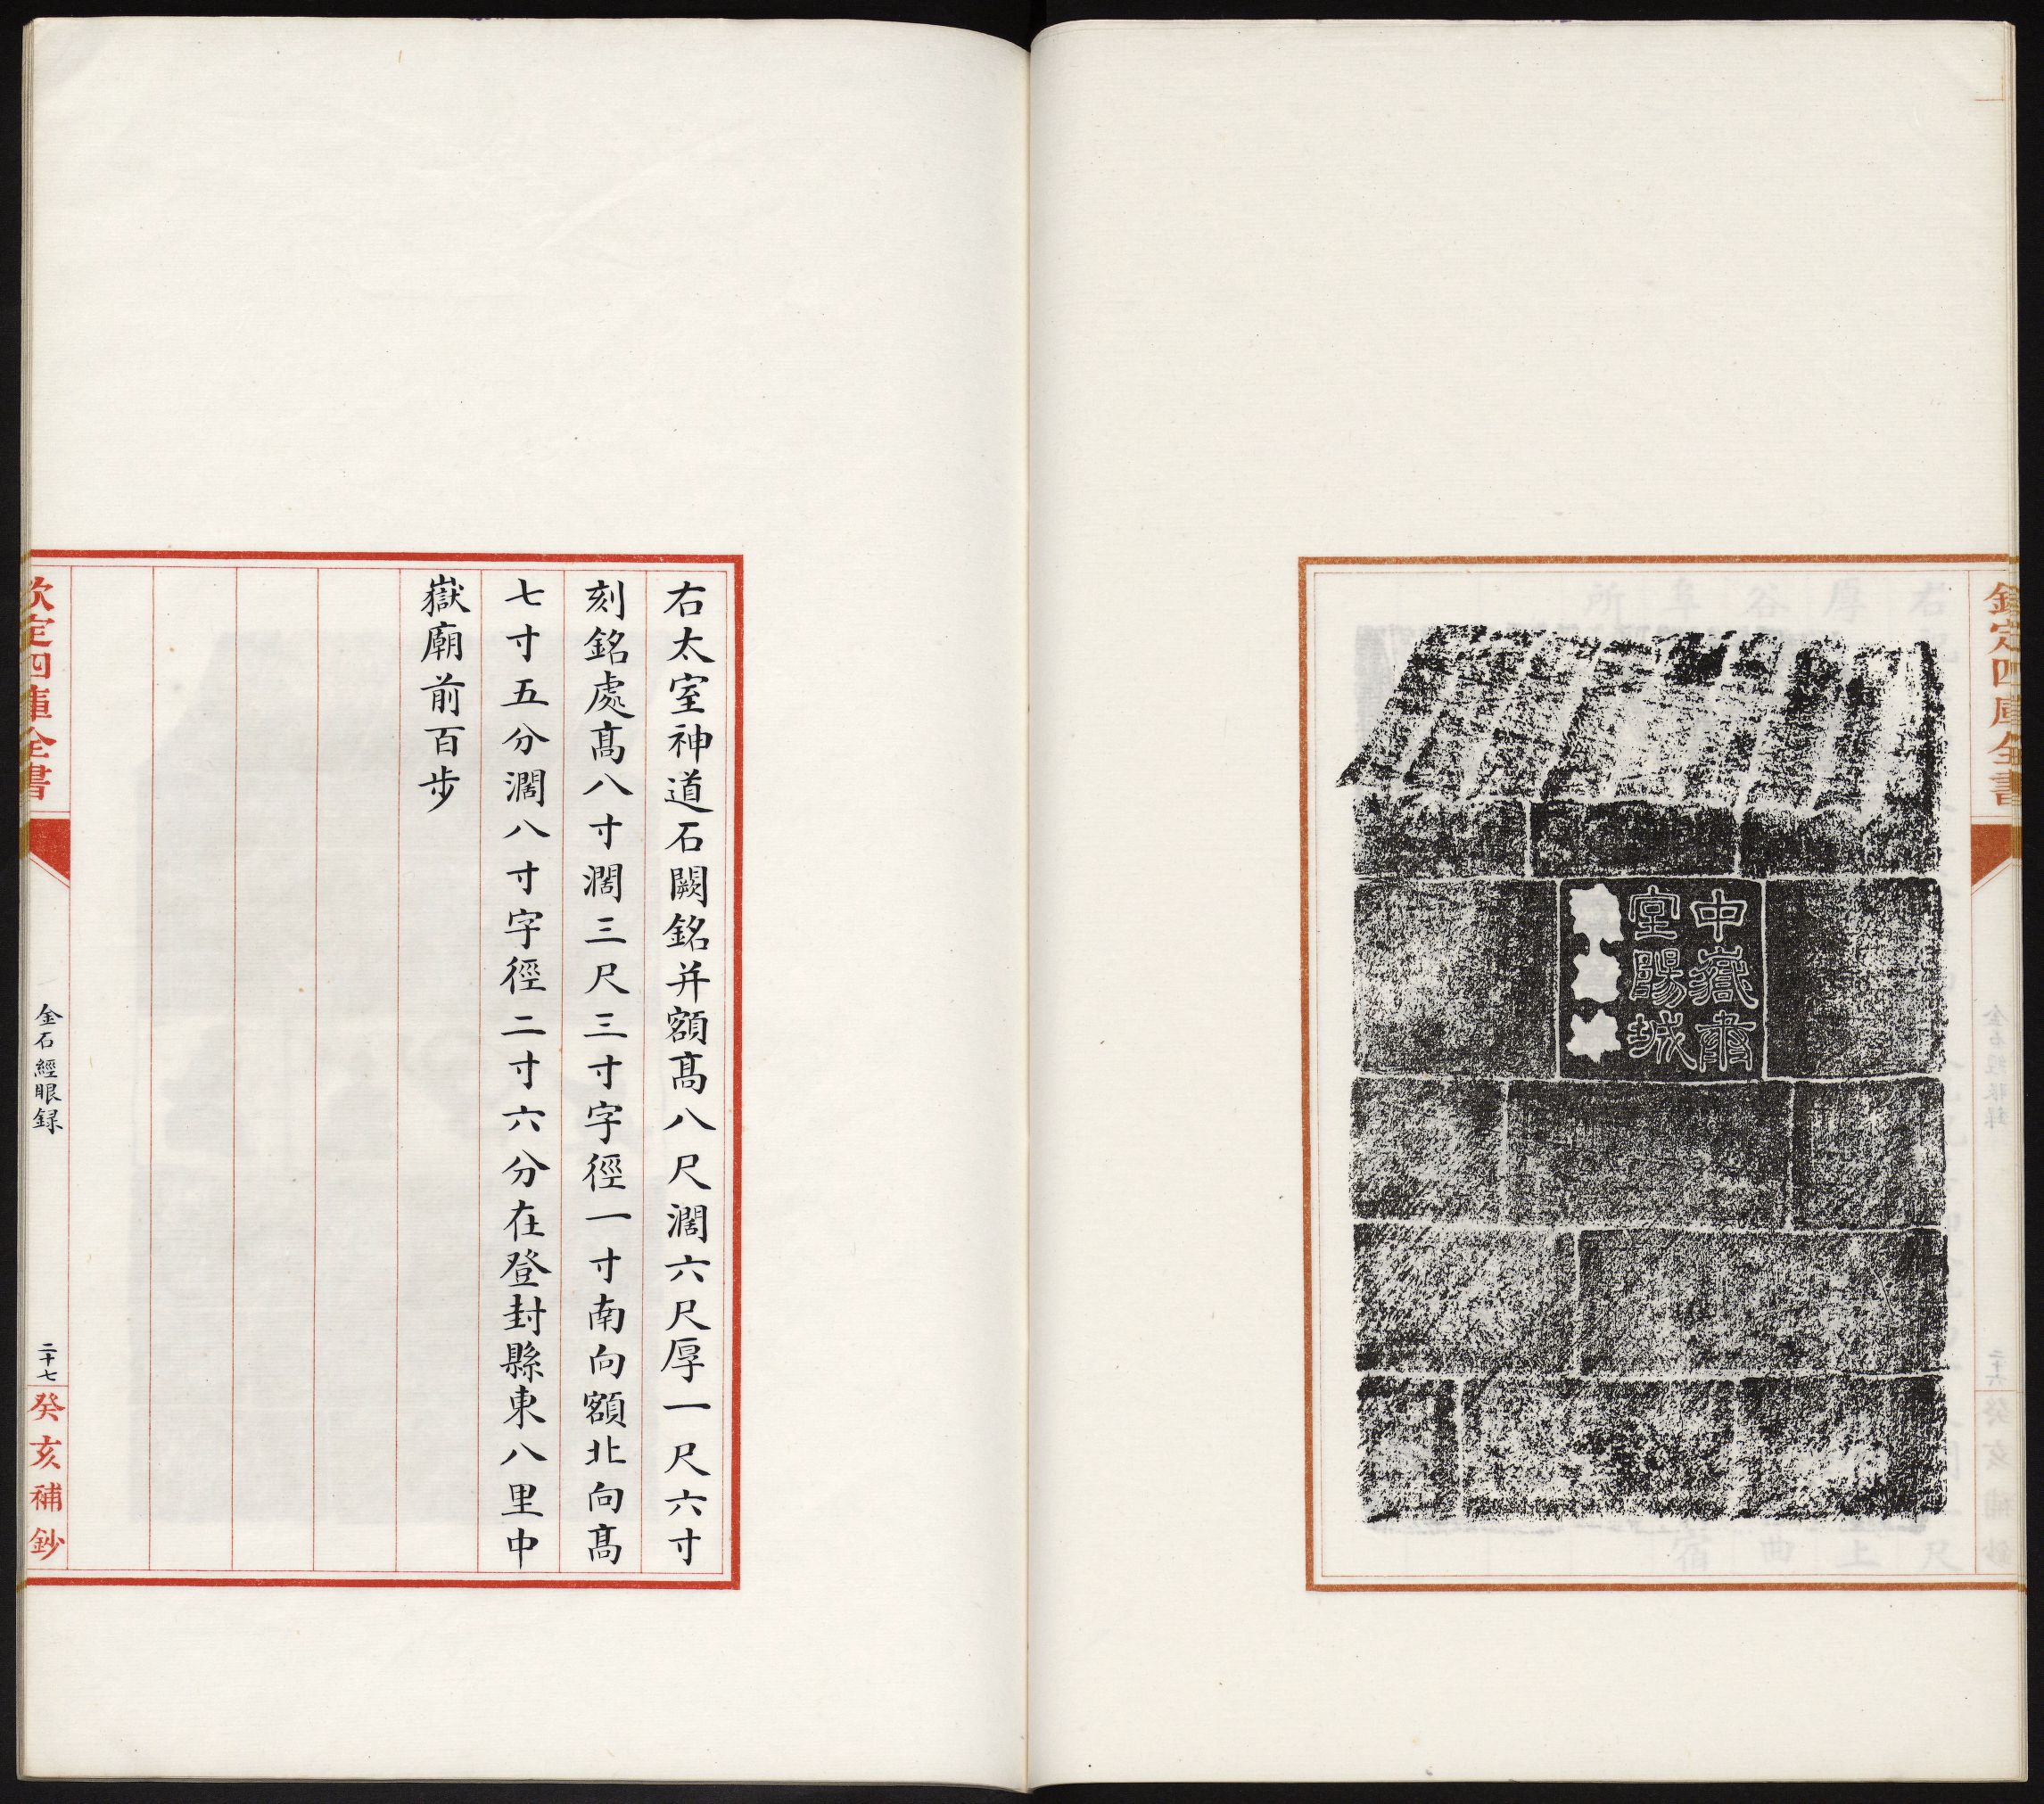 欽定四庫全書
中嶽泰
室陽城
右太室神道石闕銘并額高八尺濶六尺厚一尺六寸
刻銘處高八寸濶三尺三寸字徑一寸南向額北向高
七寸五分濶八寸字徑二寸六分在登封縣東八里中
嶽廟前百步
欽定四庫全書
金石經眼録
二十七
癸亥補鈔